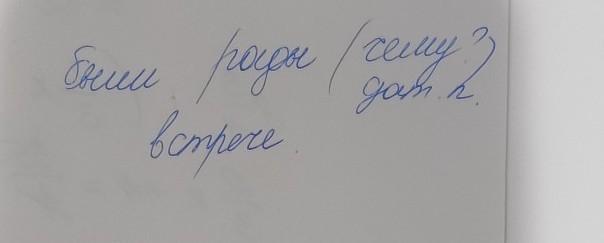 были рады (чему?)
дат. п.
встрече.